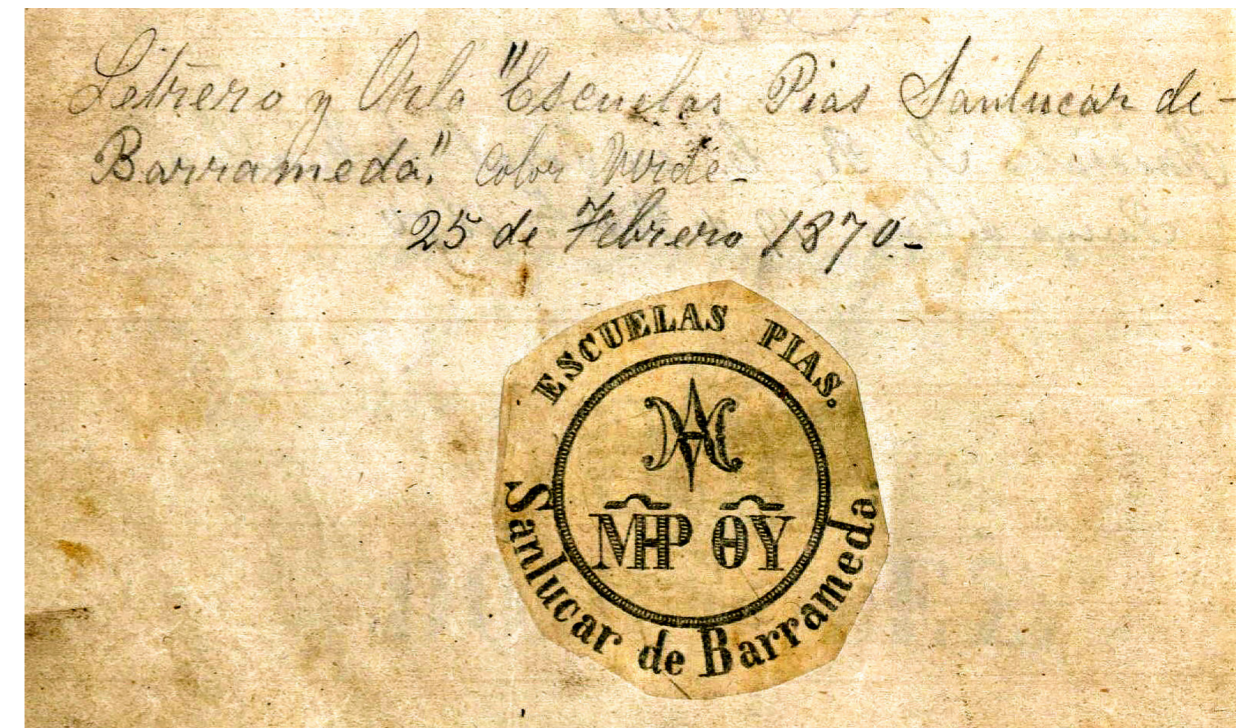 Letrero y Orla "Escuelas Pias Sanlucar de-
Barrameda". Color Verde-
25 de Febrero 1870.-
ESCUELAS PIAS.
MHP ΘY
Sanlucar de Barrameda